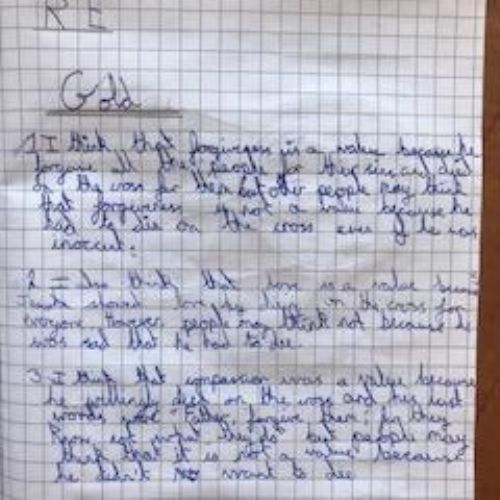 R E
Gold
1 I think that forgiveness is a value because he
forgave all the people for their sins and died
on the cross for them but other people may think
that forgiveness is not a value because he
had to die on the cross even if he was
inocent.
2. I also think that love is a value
Jesus showed love by dying on the cross for
everyone however people may think not because he
was sad that he had to die.
3. I think that compassion was a value because
he willingly died on the cross and his last
words "Father forgive them for they
know not what they do" but people may
think that it is not a value because
he didn't want to die